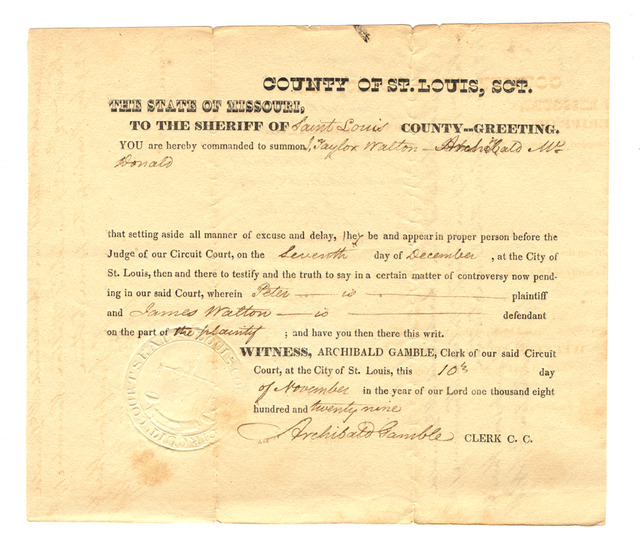 COUNTY OF ST. LOUIS, SCT.
THE STATE OF MISSOURI,
TO THE SHERIFF OF Saint Louis COUNTY---GREETING.
YOU are hereby commanded to summon Taylor Walton - Archibald Mc
Donald
that setting aside all manner of excuse and delay, they be and appear in proper person before the
Judge of our Circuit Court, on the Seventh day of December, at the City of
St. Louis, then and there to testify and the truth to say in a certain matter of controversy now pend-
ing in our said Court, wherein Peter — is — plaintiff
and James Walton — is — defendant
on the part of the plaintiff ; and have you then there this writ.
WITNESS, ARCHIBALD GAMBLE, Clerk of our said Circuit
Court, at the City of St. Louis, this 10th day
of November in the year of our Lord one thousand eight
hundred and twenty nine
Archibald Gamble CLERK C. C.